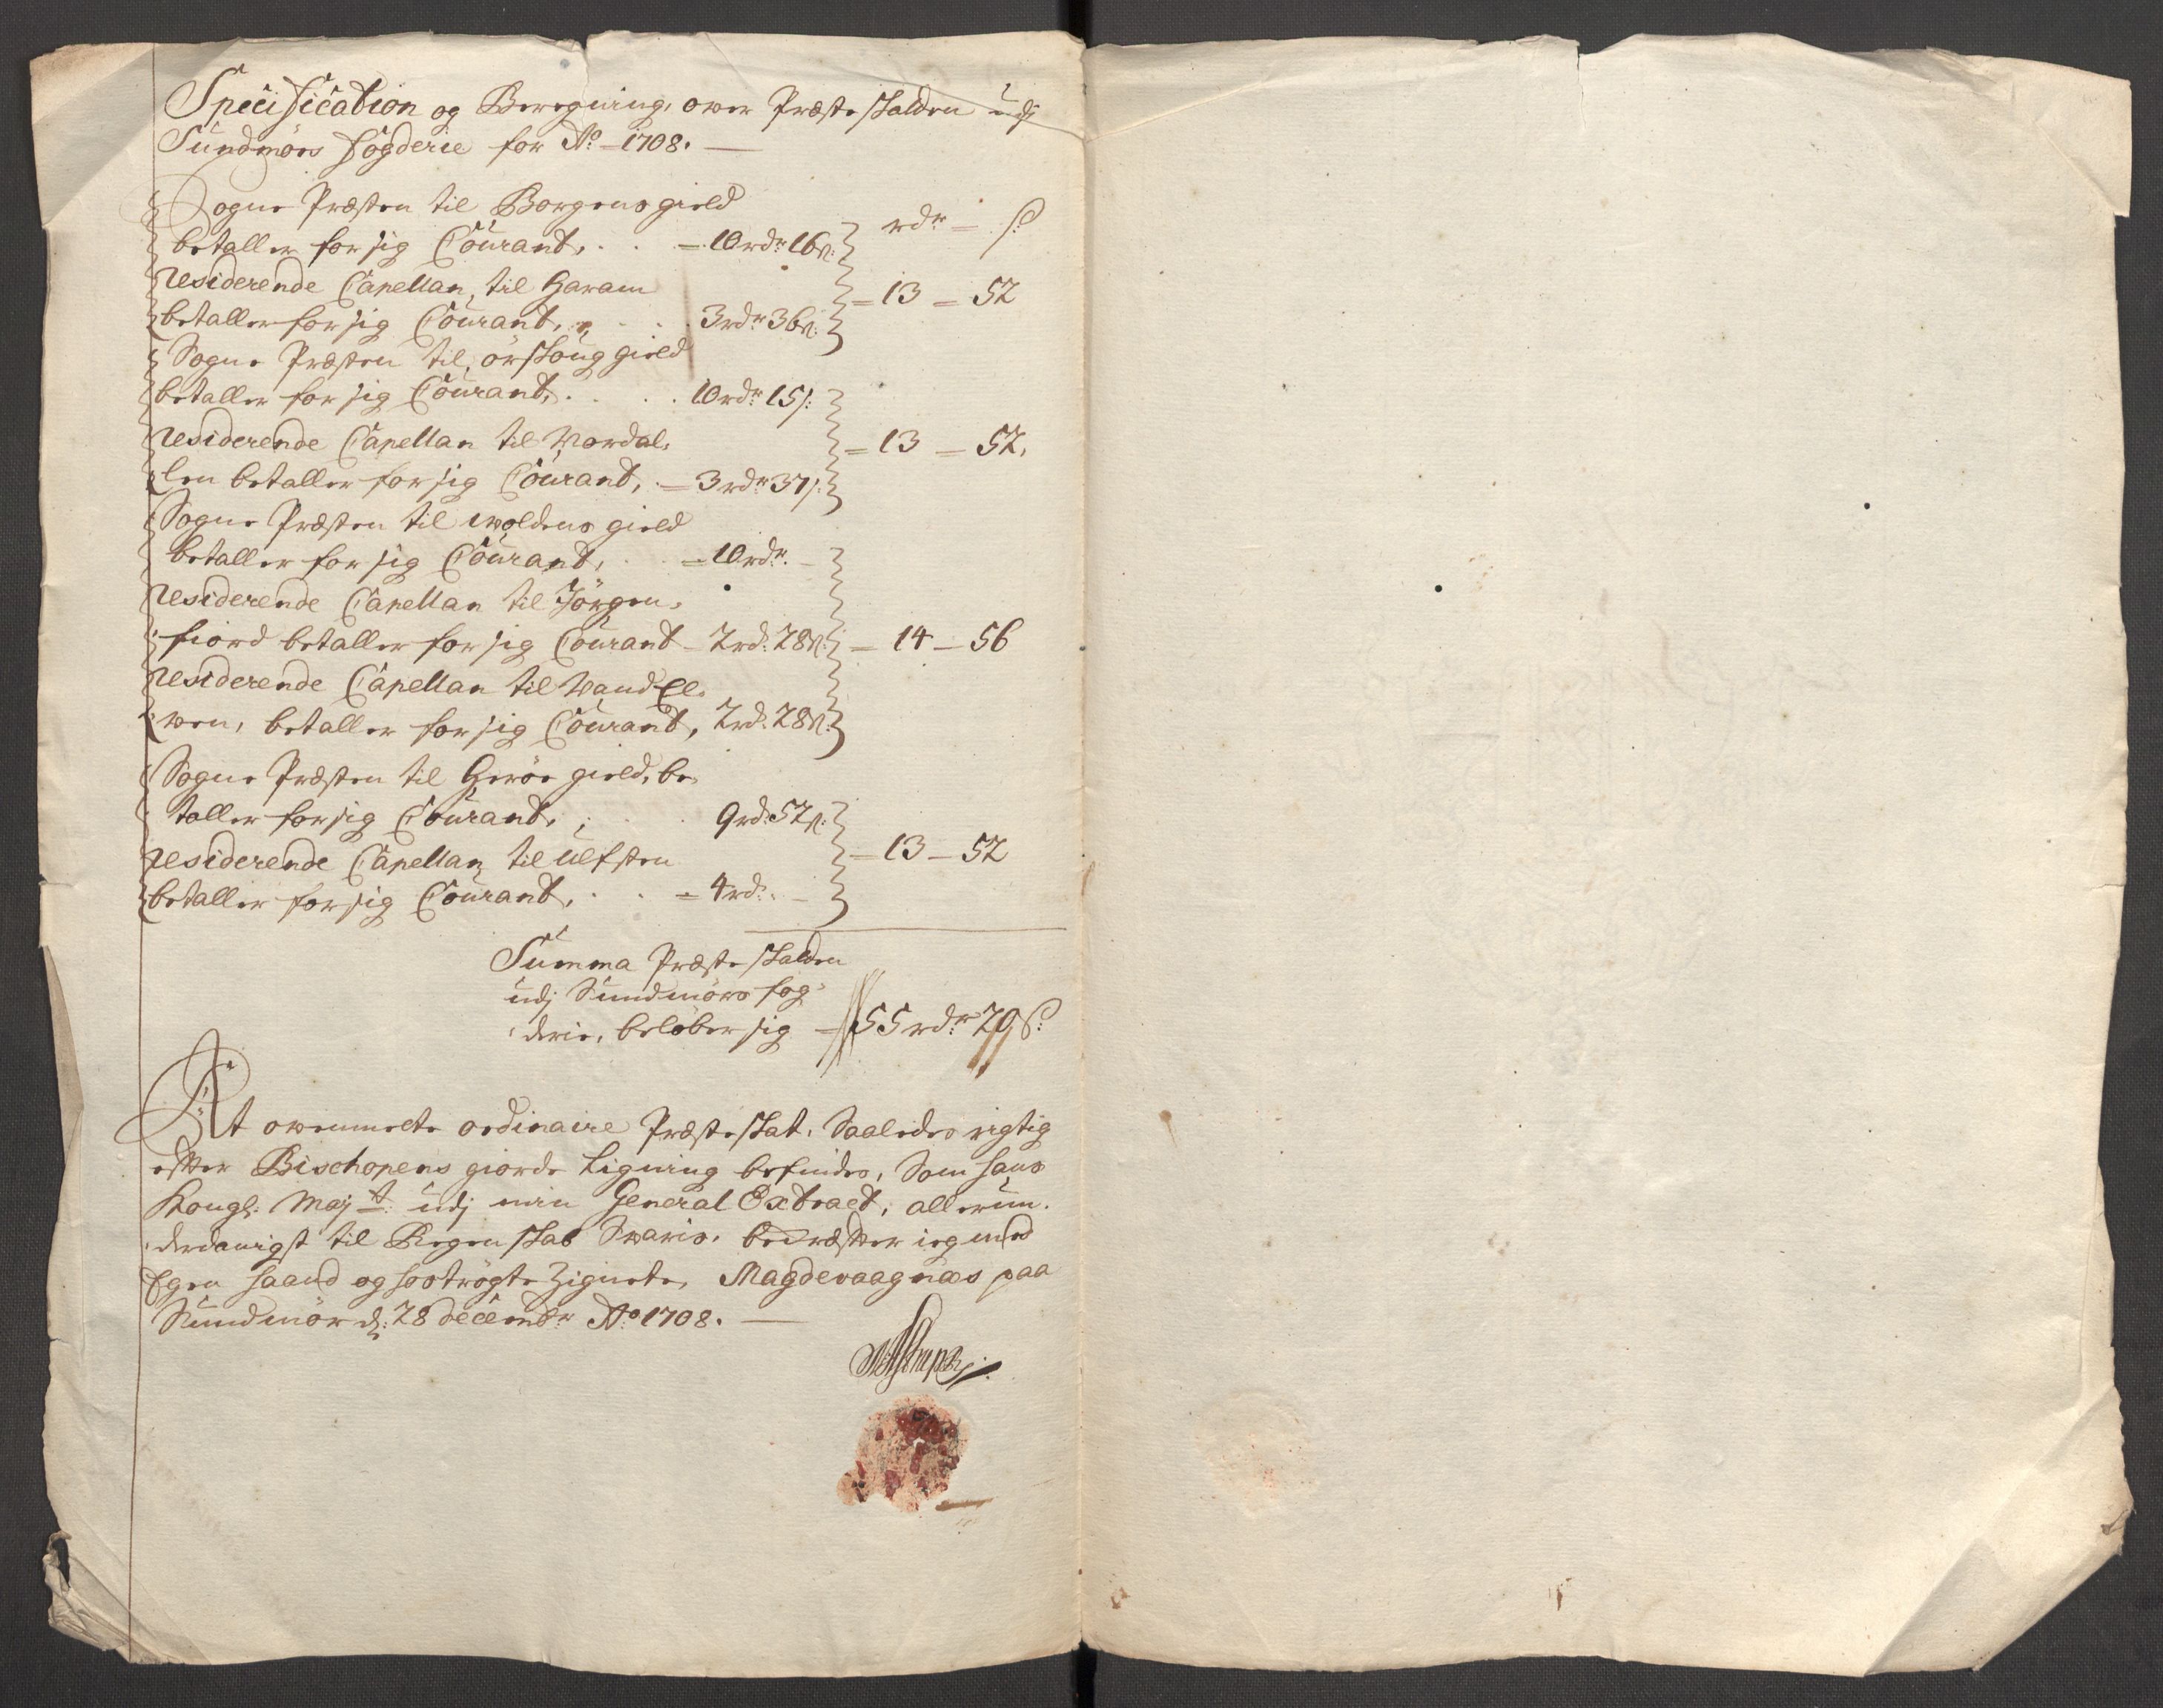 Specification og Beregning, over Præste skalden udj
Sundmörs fogderie for Ao 1708.
Sogne Præsten til Borgens gield
betaller for sig Courant, . . = 10 rdr 16 ß:
rdr = ß
residerende Capellan, til Haram
= 13 = 52
betaller for sig Courant, . . . 3 rdr 36 ß:
Sogne Præsten til, örskoug gield
betaller for sig Courant, . . . 10 rdr 15 ß:
residerende Capellan til Nordal,
= 13 = 52,
len betaller for sig Courant, = 3 rdr 37 ß:
Sogne Præsten til woldens gield
betaller for sig Courant, . . = 10 rdr. –
residerende Capellan til Jörgen,
fiord betaller for sig Courant – 2 rd: 28 ß: = 14 – 56
residerende Capellan til Vand El,
wen, betaller for sig Courant, 2 rd: 28 ß:
Sogne Præsten til Heröe gield, be,
taller for sig Courant, . . . 9 rd: 52 ß:
residerende Capellan til Ulfsten
= 13 – 52
betaller for sig Courant, . . = 4 rd: –
Summa Præste skalden
udj Sundmörs fog,
derie, belöber sig = 55 rdr 20 ß:
At ovenmelte ordinaire Præsteskat, Saaledes rigtig
efter Bischopens giorde Ligning befindes, Som hans
Kongl: Majt: udj min General Extract, allerun,
derdanigst til Regenskab Svaris, bekræfter ieg med
Egen haand og hoströgte Zignete, Magdevaagnæs paa
Sundmör d: 28 decembr Ao 1708.